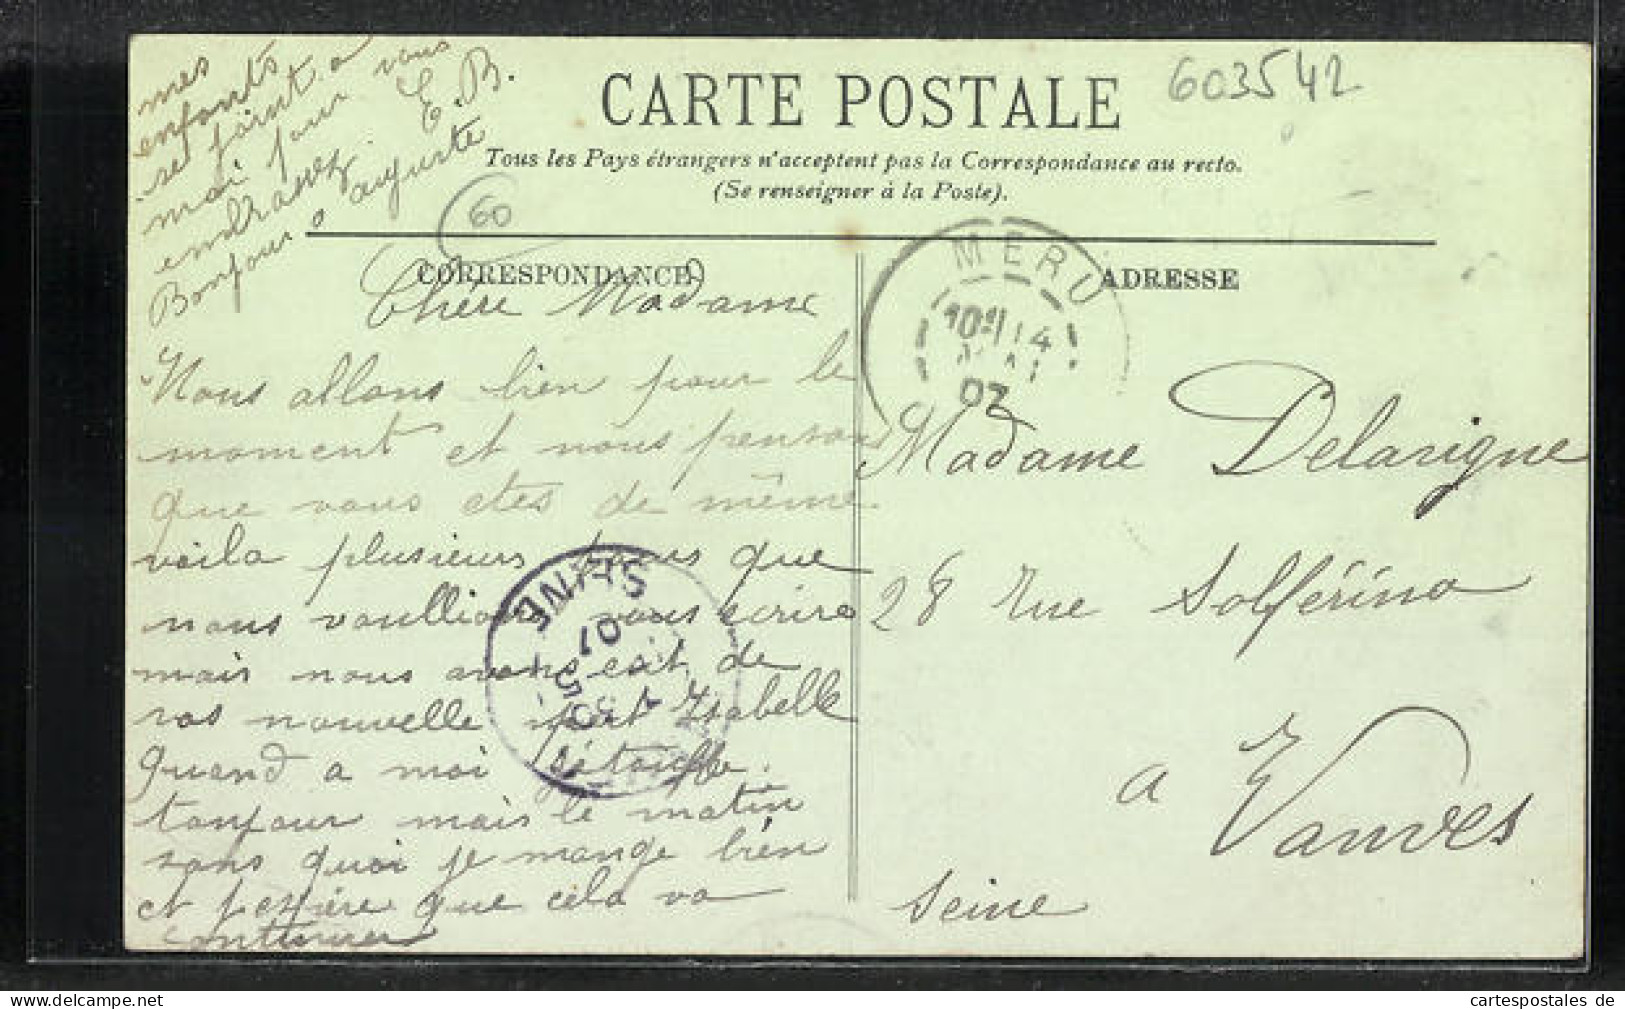 mes
enfants
se joint a
moi pour vous
embrassez E.B.
Bonjour a auguste
CARTE POSTALE
603542
Tous les Pays étrangers n'acceptent pas la Correspondance au recto.
(Se renseigner à la Poste).
60
CORRESPONDANCE
Chère Madame
Nous allons bien pour le
moment et nous pensons
que vous etes de même
voila plusieurs jours que
nous voullions vous ecrire
mais nous avons eut de
vos nouvelle part Isabelle
quand a moi
toujour mais le matin
sans quoi je mange bien
et pessère que cela va
continuer
MERU
14
07
ADRESSE
Madame Delavigne
28 Rue Solférino
a Vanves
Seine
SEINE
5
07
cartespostales de